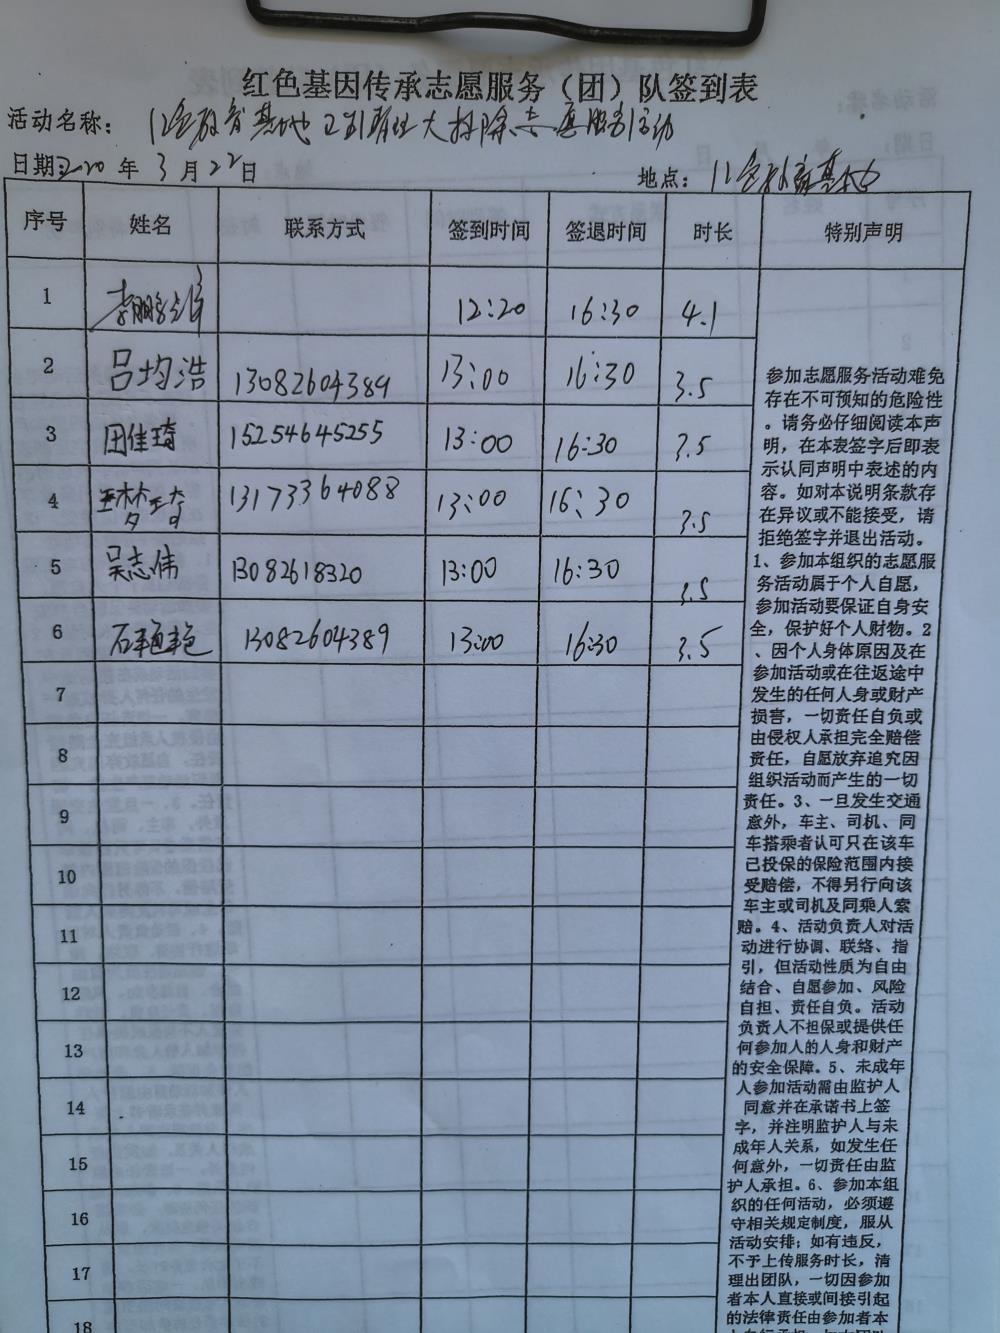 红色基因传承志愿服务（团）队签到表
活动名称：
日期：2020 年 3 月 22 日 地点：
序号 姓名 联系方式 签到时间 签退时间 时长 特别声明
1 12:20 16:30 4.1
2 吕均浩 13082604389 13:00 16:30 3.5
3 田佳琦 15254645255 13:00 16:30 3.5
4 王梦琦 13173364088 13:00 16:30 3.5
5 吴志伟 13082618320 13:00 16:30 3.5
6 石艳艳 13082604389 13:00 16:30 3.5
7
8
9
10
11
12
13
14
15
16
17
18
参加志愿服务活动难免
存在不可预知的危险性
。请务必仔细阅读本声
明，在本表签字后即表
示认同声明中表述的内
容。如对本说明条款存
在异议或不能接受，请
拒绝签字并退出活动。
1、参加本组织的志愿服
务活动属于个人自愿，
参加活动要保证自身安
全，保护好个人财物。2
、因个人身体原因及在
参加活动或在往返途中
发生的任何人身或财产
损害，一切责任自负或
由侵权人承担完全赔偿
责任，自愿放弃追究因
组织活动而产生的一切
责任。3、一旦发生交通
意外，车主、司机、同
车搭乘者认可只在该车
已投保的保险范围内接
受赔偿，不得另行向该
车主或司机及同乘人索
赔。4、活动负责人对活
动进行协调、联络、指
引，但活动性质为自由
结合、自愿参加、风险
自担、责任自负。活动
负责人不担保或提供任
何参加人的人身和财产
的安全保障。5、未成年
人参加活动需由监护人
同意并在承诺书上签
字，并注明监护人与未
成年人关系，如发生任
何意外，一切责任由监
护人承担。6、参加本组
织的任何活动，必须遵
守相关规定制度，服从
活动安排；如有违反，
不予上传服务时长，清
理出团队，一切因参加
者本人直接或间接引起
的法律责任由参加者本